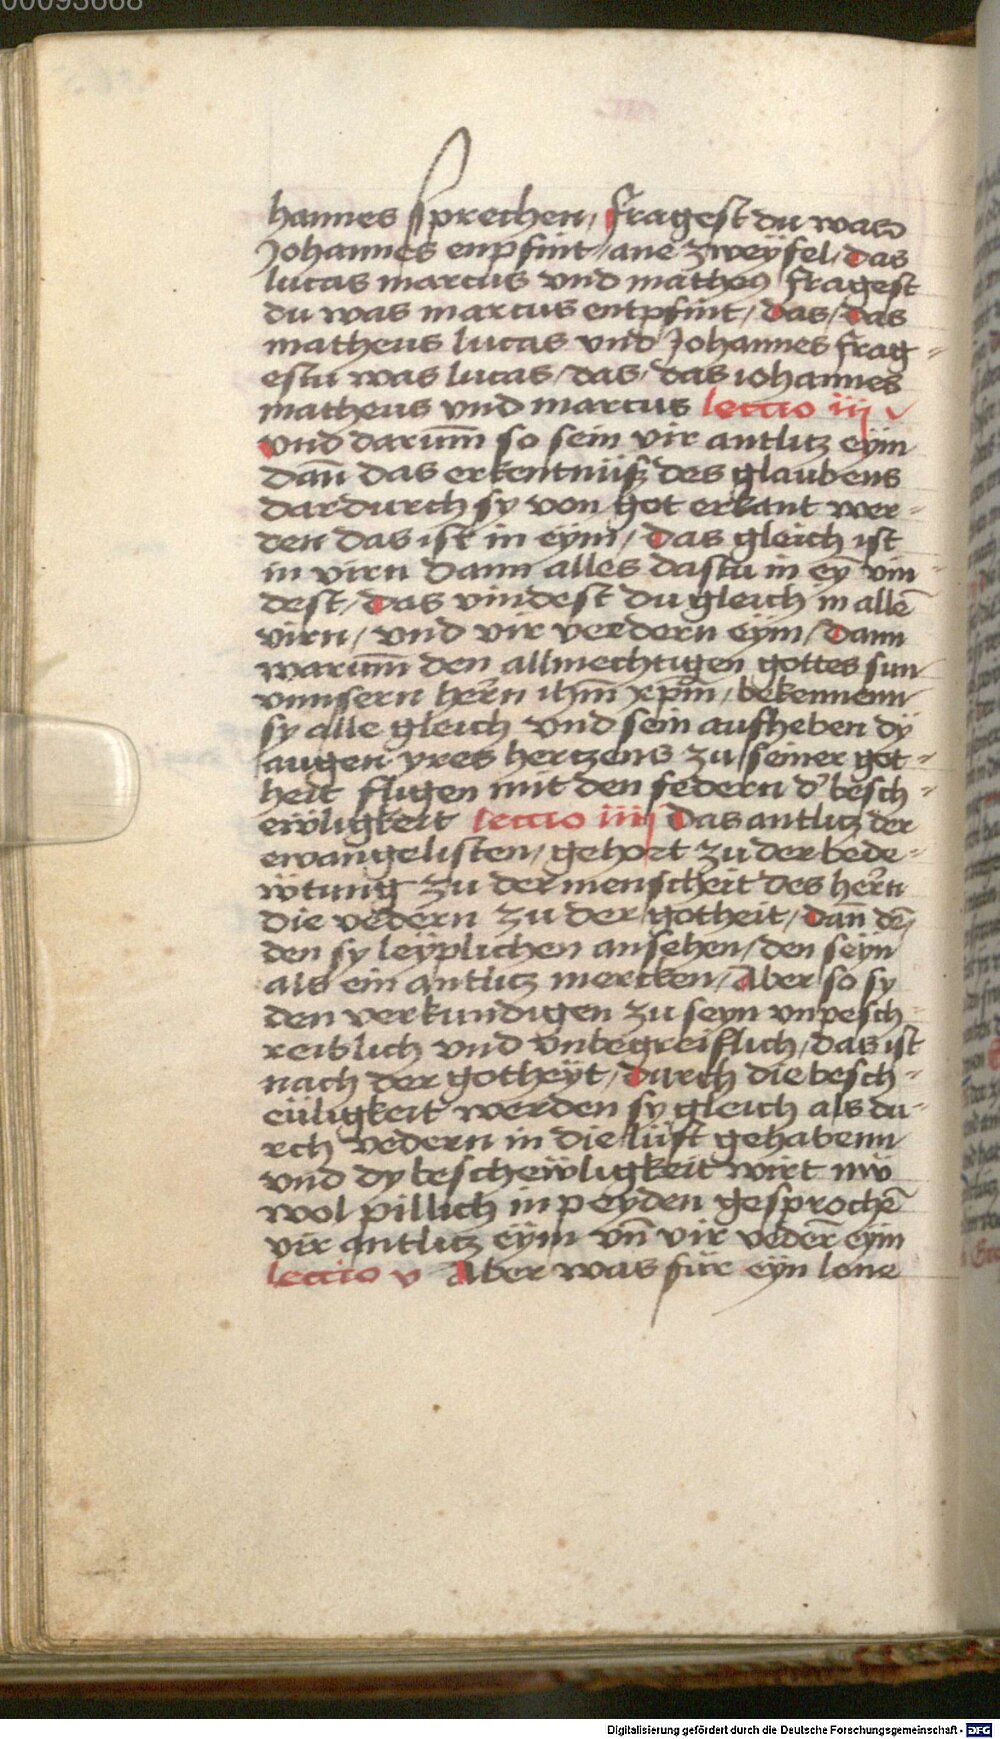 00093668
hannes sprechen / fragest du was
Johannes enpfint / ane zweyfel / das
lucas marcus und matheus fragest
du was marcus entpfint / das / das
matheus lucas und Johannes frag=
estu was lucas / das / das iohannes
matheus vnd marcus lectio iij
vnd darum̄ so sein vir antlitz eÿm
dan̄ das erkentnüß des glaubens
dardurch sy von got erkant wer=
den das ist in eÿm / das gleich ist
in virn dann alles dastu in eÿ vin=
dest / das vindest du gleich in allē
virn / vnd vir vedern eÿm / dann
warum̄ den allmechtigen gottes sun
vnnsern hern ihm̄ xpm̄ / bekennenn
sy alle gleich vnd sein aufheben dÿ
augen yres hertzens zu seiner got=
heit fligen mit den federn d' besch=
ewligkeit lectio iiij Das antlitz der
ewangelisten / gehort zu der bede=
wtung zu der menscheit des hern
die vedern zu der gotheit / dan̄ dē
den sy leÿplichen ansehen / den seÿn
als ein antlitz mercken / Aber so sy
den verkundigen zu seyn vnpesch
reiblich vnd vnbegreiflich / das ist
nach der gotheÿt / durch die besch=
eüligkeit werden sy gleich als du=
rch vedern in die lüft gehabenn
vnd dy bescheẅligkeit wirt nẅ
wol pillich in peyden gesprochē
vir antlitz eÿm vn̄ vir vedern eÿm
lectio v Aber was für eÿn lone
Digitalisierung gefördert durch die Deutsche Forschungsgemeinschaft - DFG